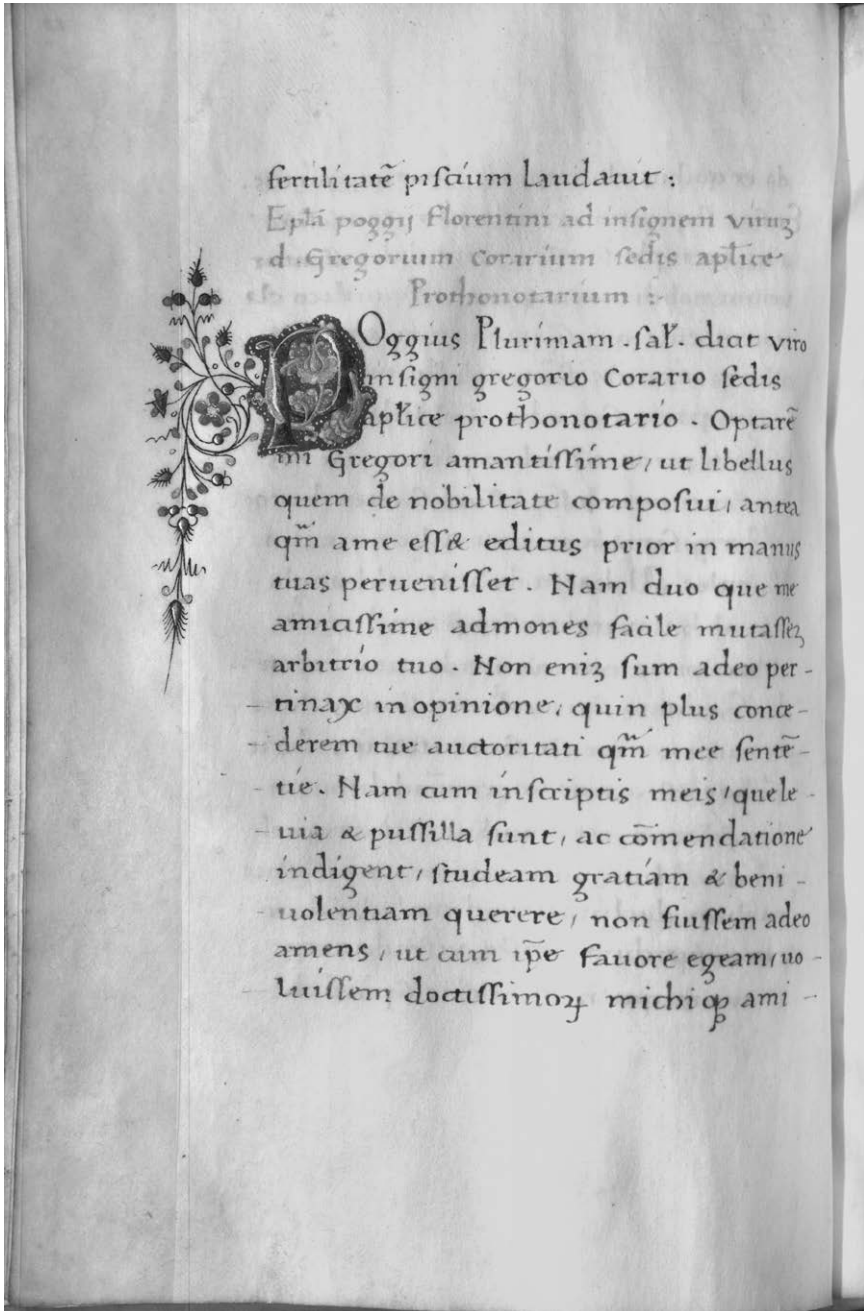 fertilitatē piscium laudauit :
Epl̄a poggij Florentini ad insignem viruꝫ
d. Gregorium Corarium sedis apl̄ice
Prothonotarium :
POggius Plurimam . sal̄ . dicit viro
insigni gregorio Corario sedis
apl̄ice prothonotario . Optarē
mi Gregori amantissime / ut libellus
quem de nobilitate composui / antea
qm̄ a me ess& editus prior in manus
tuas peruenisset . Nam duo que me
amicissime admones facile mutasseꝫ
arbitrio tuo . Non eniꝫ sum adeo per-
tinax in opinione / quin plus conce-
derem tue auctoritati qm̄ mee sentē-
tie . Nam cum in scriptis meis / que le-
uia & pussilla sunt / ac cōmendatione
indigent / studeam gratiam & beni-
uolentiam querere / non fuissem adeo
amens / ut cum ip̄e fauore egeam / uo-
luissem doctissimoꝝ michi qꝫ ami-